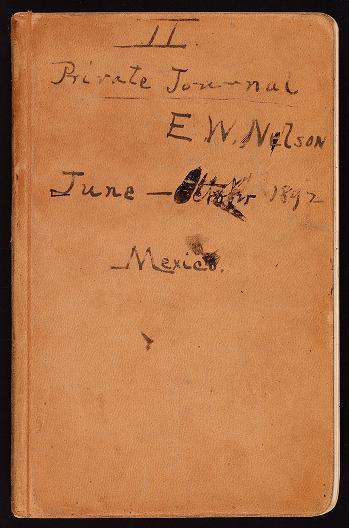 II.
Private Journal
E. W. Nelson
June - October 1892
Mexico.